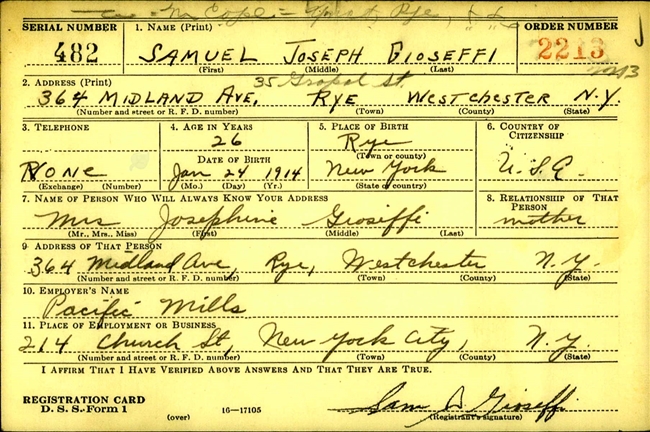 Rye,
SERIAL NUMBER 1. NAME (Print) ORDER NUMBER
482 SAMUEL JOSEPH GIOSEFFI 2213
(First) (Middle) (Last)
2. ADDRESS (Print) 35 St.
364 MIDLAND AVE. RYE WESTCHESTER N.Y.
(Number and street or R. F. D. number) (Town) (County) (State)
3. TELEPHONE 4. AGE IN YEARS 5. PLACE OF BIRTH 6. COUNTRY OF CITIZENSHIP
26 Rye
DATE OF BIRTH (Town or county)
None Jan 24 1914 New York U.S.A.
(Exchange) (Number) (Mo.) (Day) (Yr.) (State or country)
7. NAME OF PERSON WHO WILL ALWAYS KNOW YOUR ADDRESS 8. RELATIONSHIP OF THAT PERSON
Mrs Josephine Gioseffi mother
(Mr., Mrs., Miss) (First) (Middle) (Last)
9. ADDRESS OF THAT PERSON
364 Midland Ave, Rye, Westchester N.Y.
(Number and street or R. F. D. number) (Town) (County) (State)
10. EMPLOYER'S NAME
Pacific Mills
11. PLACE OF EMPLOYMENT OR BUSINESS
214 Church St, New York City, N.Y.
(Number and street or R. F. D. number) (Town) (County) (State)
I AFFIRM THAT I HAVE VERIFIED ABOVE ANSWERS AND THAT THEY ARE TRUE.
REGISTRATION CARD
D. S. S. Form 1 (over) 16—17105 Sam Gioseffi
(Registrant's signature)